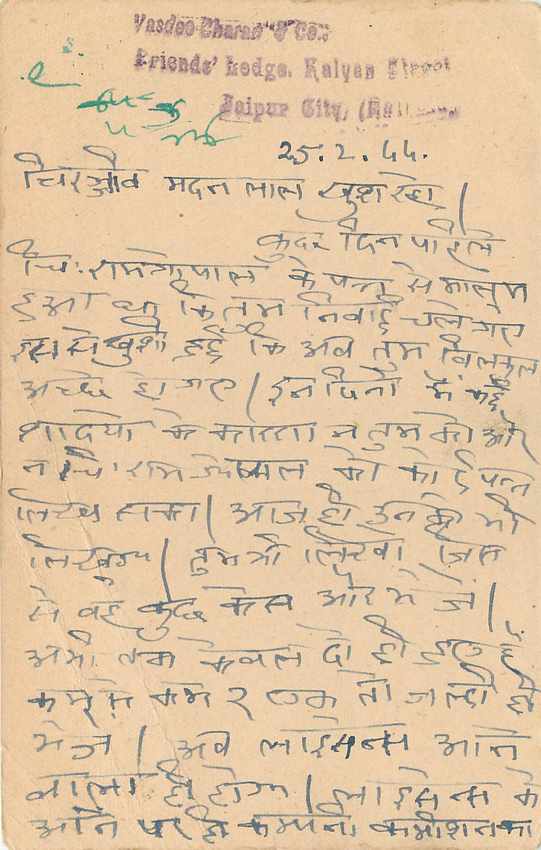 Vasdeo Charan & Co.:
Friends' Lodge, Kalyan Street
Jaipur City,
25.2.44.
चिरंजीव मदन लाल खुश रहो।
कुछ दिन पहिले
चि: रामगोपाल के पत्र से मालूम
हुआ था कि तुम निवाई चले गए
इससे खुशी हुई कि अब तुम बिलकुल
अच्छे हो गए। इन दिनों में कई
शादियों के कारण न तुम को और
न चि: राम गोपाल को कोई पत्र
लिख सका। आज ही उनको भी
लिखूंगा। तुम भी लिखो जिस
से वह कुछ केस और भेजें।
अभी तक केवल दो ही हुए हैं
कम से कम २ एक तो जल्दी ही
भेजें। अब लाइसेन्स आने
वाला ही होगा। लाइसेन्स के
आने पर ही कम्पनी कमीशन का